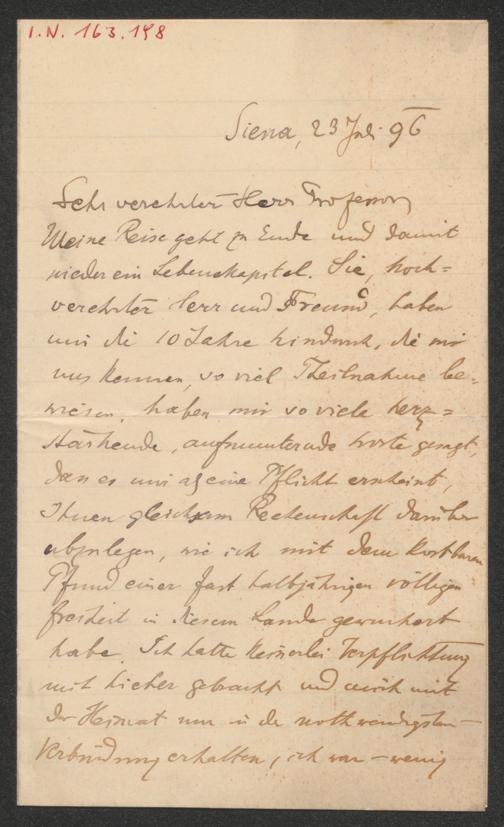 I.N. 163.198
Siena, 23 Juli 96
Sehr verehrter Herr Professor
Meine Reise geht zu Ende und damit
wieder ein Lebenskapitel. Sie, hoch-
verehrter Herr und Freund, haben
mir die 10 Jahre hindurch, die wir
uns kennen, so viel Theilnahme be-
wiesen, haben mir so viele herz-
stärkende, aufmunternde Worte gesagt,
dass es mir als eine Pflicht erscheint,
Ihnen gleichsam Rechenschaft darüber
abzulegen, wie ich mit dem kostbaren
Pfund einer fast halbjährigen völligen
Freiheit in diesem Lande gewuchert
habe. Ich hatte keinerlei Verpflichtung
mit hieher gebracht und mich mit
der Heimat nur in der nothwendigsten
Verbindung erhalten, ich war – wenig